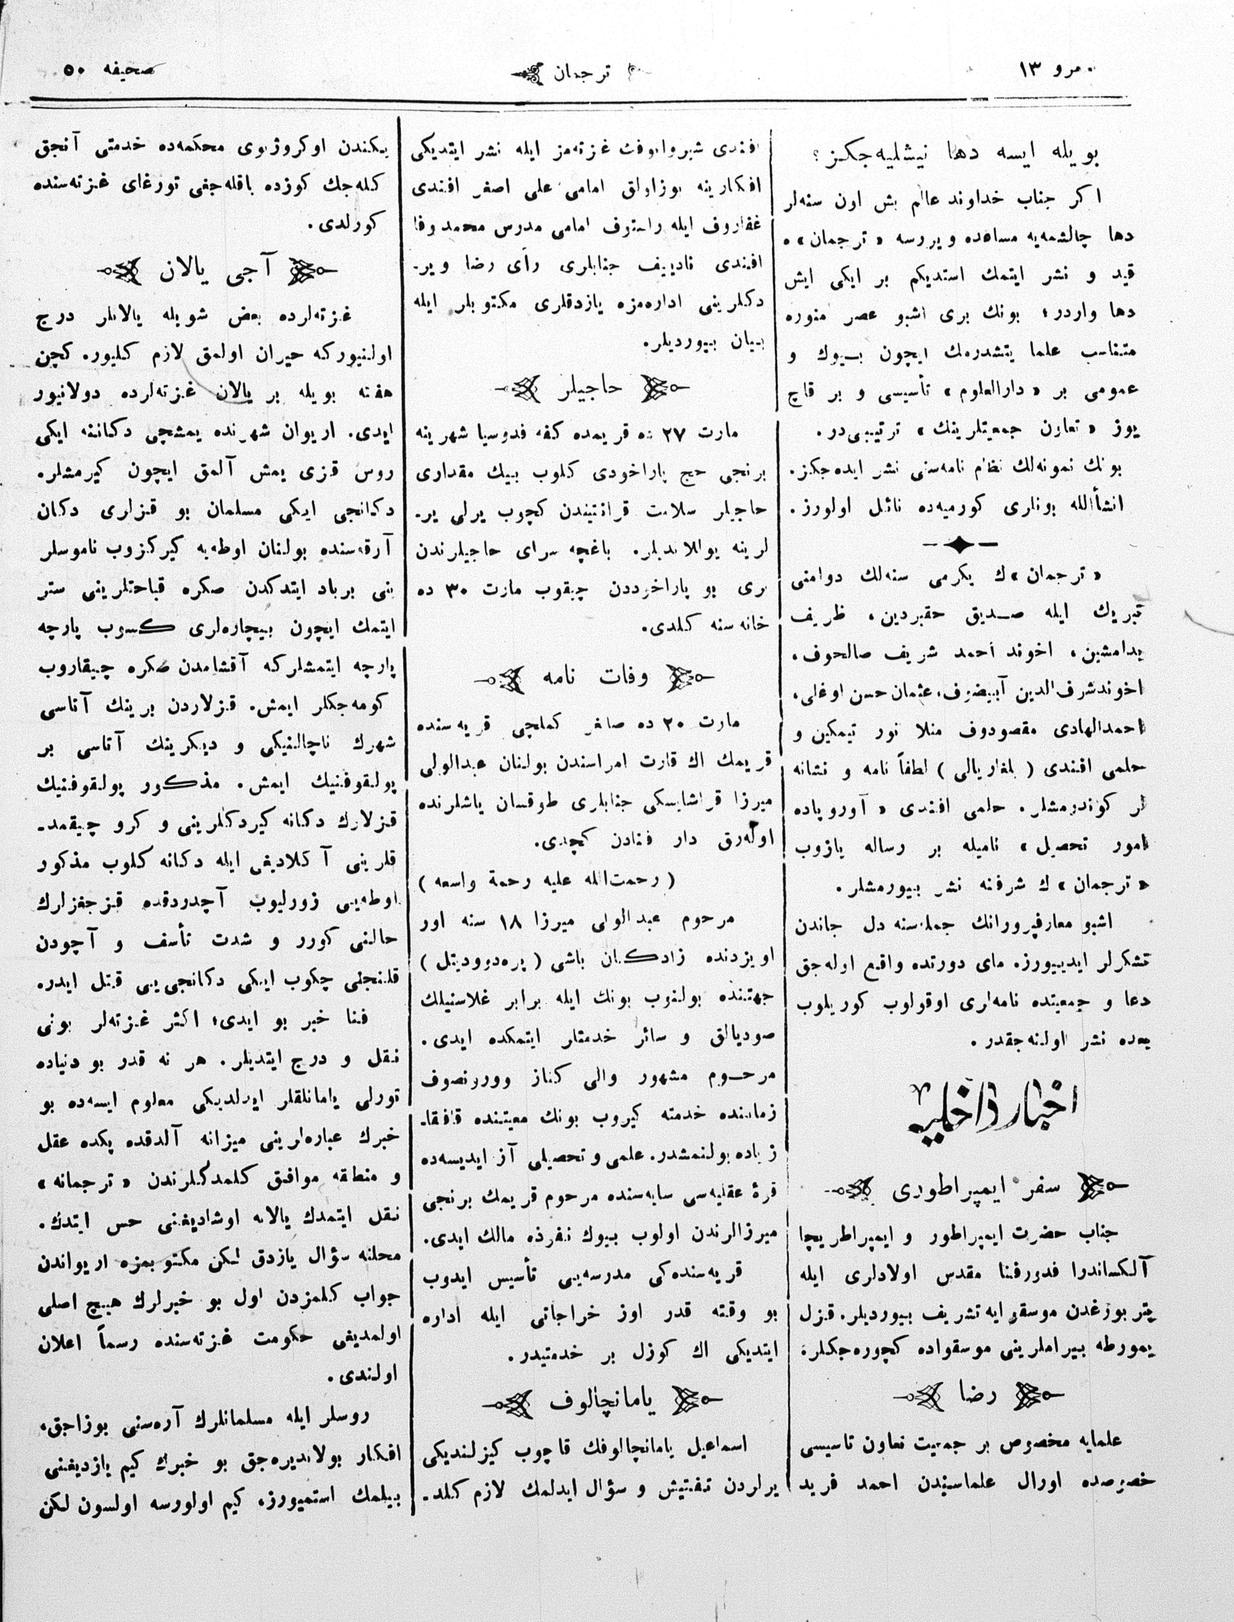 نمرو ۱۳
ترجمان
صحیفه ۵۰
بویله ایسه دها نیشلیه‌جکز؟
اکر جناب خداوند عالم بش اون سنه‌لر
دها چالشمه‌یه مساعده ویررسه « ترجمان»ه
قید و نشر ایتمك استدیکم بر ایکی ایش
دها واردر؛ بونك بری اشبو عصر منوره
متناسب علما یتشدرمك ایچون بیوك و
عمومی بر « دارالعلوم» تأسیسی و بر قاچ
یوز « تعاون جمعیتلرینك» ترتیبی‌در.
بونك نمونه‌لك نظام نامه‌سنی نشر ایده‌جکز.
انشأالله بونلری کورمیه‌ده نائل اولورز.
« ترجمان»ك یکرمی سنه‌لك دوامنی
تبریك ایله صدیق حقبردین، ظریف
بدامشین، اخوند احمد شریف صالحوف،
اخوندشرف‌الدین آبیضوف، عثمان حسن اوغلی،
احمدالهادی مقصودوف منلا نور تیمکین و
حلمی افندی ( بلغاریالی ) لطفاً نامه و نشانه
لر کوندرمشلر. حلمی افندی « آوروپاده
نامور تحصیل» نامیله بر رساله یازوب
« ترجمان»ك شرفنه نشر بیورمشلر.
اشبو معارفپرورانك جمله‌سنه دل جاندن
تشکرلر ایدییورز. مای دورتده واقع اوله‌جق
دعا و جمعیتده نامه‌لری اوقولوب کوریلوب
بعده نشر اولنه‌جقدر.
اخبار داخلیه
سفر ایمپراطوری
جناب حضرت ایمپراطور و ایمپراطریچا
آلکساندرا فدورفنا مقدس اولادلری ایله
پتربورغدن موسقوایه تشریف بیوردیلر. قزل
یمورطه بیراملرینی موسقواده کچوره‌جکلر.
رضا
علمایه مخصوص بر جمعیت تعاون تاسیسی
خصوصده اورال علماسیندن احمد فرید
افندی شیروانوفك غزته‌مز ایله نشر ایتدیکی
افکارینه بوزاولق امامی علی اصغر افندی
غفاروف ایله راستوف امامی مدرس محمد وفا
افندی نادییف جنابلری رأی رضا ویر-
دکلرینی اداره‌مزه یازدقلری مکتوبلر ایله
بیان بیوردیلر.
حاجیلر
مارت ۲۷ ده قریمده کفه فدوسیا شهرینه
برنجی حج پاراخودی کلوب بیك مقداری
حاجیلر سلامت قرانتیندن کچوب یرلی یر-
لرینه یوللاندیلر. باغچه سرای حاجیلرندن
بری بو پاراخوددن چیقوب مارت ۳۰ ده
خانه سنه کلدی.
وفات نامه
مارت ۲۰ ده صاغر کملچی قریه‌سنده
قریمك اك قارت امراسندن بولنان عبدالولی
میرزا قراشایسکی جنابلری طوقسان یاشلرنده
اوله‌رق دار فنادن کچدی.
( رحمت‌الله علیه رحمة واسعه )
مرحوم عبدالولی میرزا ۱۸ سنه اور
اویزدنده زادکان باشی ( پره‌دوودیتل )
جهتنده بولنوب بونك ایله برابر غلاسنیلك
صودیالق و سائر خدمتلر ایتمکده ایدی.
مرحوم مشهور والی کناز وورونصوف
زماننده خدمته کیروب بونك معیتنده قافقا-
زیاده بولنمشدر. علمی و تحصیلی آز ایدیسه‌ده
قوۀ عقلیه‌سی سایه‌سنده مرحوم قریمك برنجی
میرزالرندن اولوب بیوك نفوذه مالك ایدی.
قریه‌سنده‌کی مدرسه‌یی تأسیس ایدوب
بو وقته قدر اوز خراجاتی ایله اداره
ایتدیکی اك کوزل بر خدمتیدر.
یامانچالوف
اسماعیل یامانچالوفك قاچوب کیزلندیکی
یرلردن تفتیش و سؤال ایدلمك لازم کلد-
یکندن اوکروژنوی محکمه‌ده خدمتی آنجق
کله‌جك کوزده باقله‌جغی تورغای غزته‌سنده
کورلدی.
آجی یالان
غزته‌لرده بعض شویله یالانلر درج
اولنیورکه حیران اولمق لازم کلیور. کچن
هفته بویله بر یالان غزته‌لرده دولانیور
ایدی. اریوان شهرنده یمشچی دکاننه ایکی
روس قزی یمش آلمق ایچون کیرمشلر.
دکانجی ایکی مسلمان بو قزلری دکان
آرقه‌سنده بولنان اوطه‌یه کیرکزوب ناموسلر
ینی برباد ایتدکدن صکره قباحتلرینی ستر
ایتمك ایچون بیچاره‌لری کسوب پارچه
پارچه ایتمشلرکه آقشامدن صکره چیقاروب
کومه‌جکلر ایمش. قزلاردن برینك آتاسی
شهرك ناچالنیکی و دیکرینك آتاسی بر
پولقوفنیك ایمش. مذکور پولقوفنیك
قزلارك دکانه کیردکلرینی و کرو چیقمد-
قلرینی آکلادیغی ایله دکانه کلوب مذکور
اوطه‌یی زورلیوب آچدردقده قزجغزلرك
حالنی کورر و شدت تأسف و آچودن
قلنجلی چکوب ایکی دکانجی‌یی قتل ایدر.
فنا خبر بو ایدی؛ اکثر غزته‌لر بونی
نقل و درج ایتدیلر. هر نه قدر بو دنیاده
تورلی یامانلقلر ایدلدیکی معلوم ایسه‌ده بو
خبرك عباره‌لرینی میزانه آلدقده پکده عقل
و منطقه موافق کلمدکلرندن « ترجمانه»
نقل ایتمدك یالانه اوشادیغنی حس ایتدك.
محلنه سؤال یازدق لکن مکتوبمزه اریواندن
جواب کلمزدن اول بو خبرلرك هیچ اصلی
اولمدیغی حکومت غزته‌سنده رسماً اعلان
اولندی.
روسلر ایله مسلمانلرك آره‌سنی بوزاجق،
افکار بولاندیره‌جق بو خبرك کیم یازدیغنی
بیلمك استمیورز. کیم اولورسه اولسون لکن